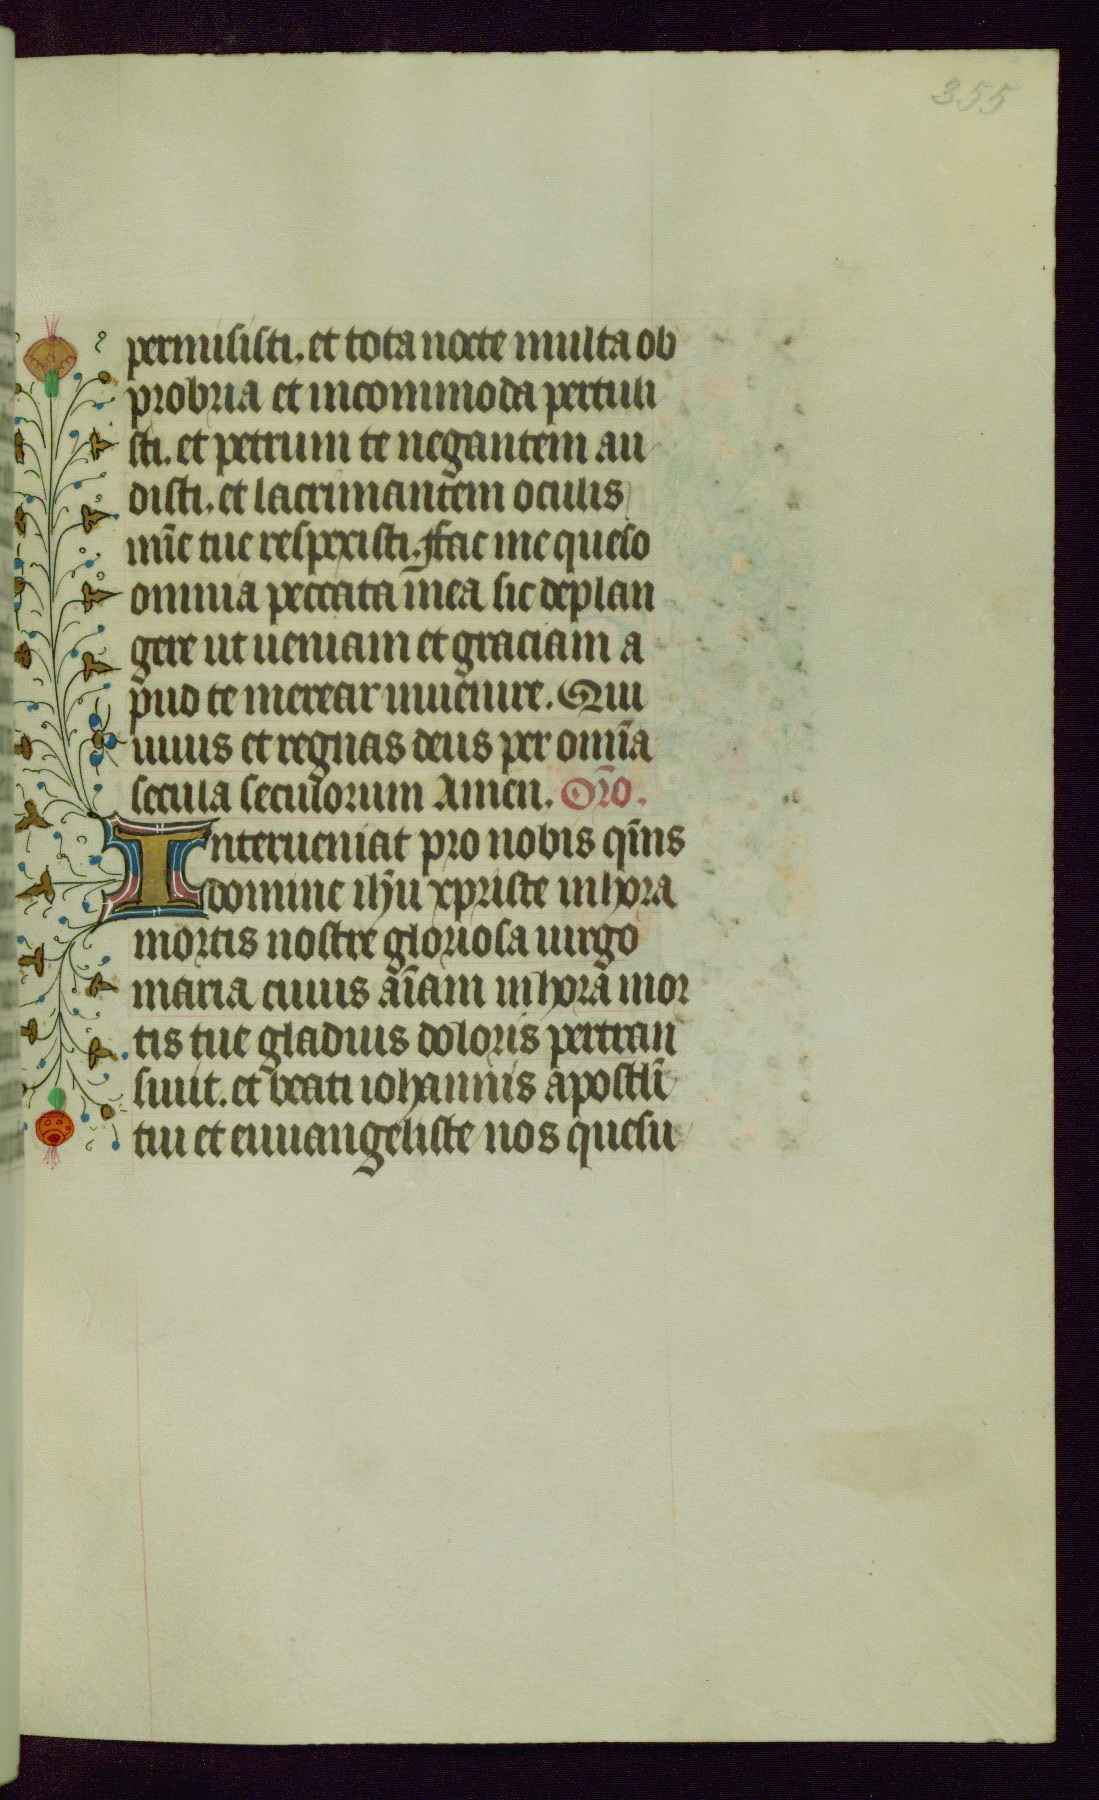 355
permisisti. et tota nocte multa ob
probria et incommoda pertuli
sti. et petrum te negantem au
disti. et lacrimantem oculis
mīe tue respexisti. ffac me queso
omnia peccata mea sic deplan
gere ut ueniam et graciam a
pud te merear inuenire. Qui
uiuis et regnas deus per omīa
secula seculorum Amen. Orō.
Interueniat pro nobis qm̄s
domine ihū xpriste in hora
mortis nostre gloriosa uirgo
maria cuius aīam in hora mor
tis tue gladius doloris pertran
siuit. et beati iohannis apostli
tui et euuangeliste nos quesu